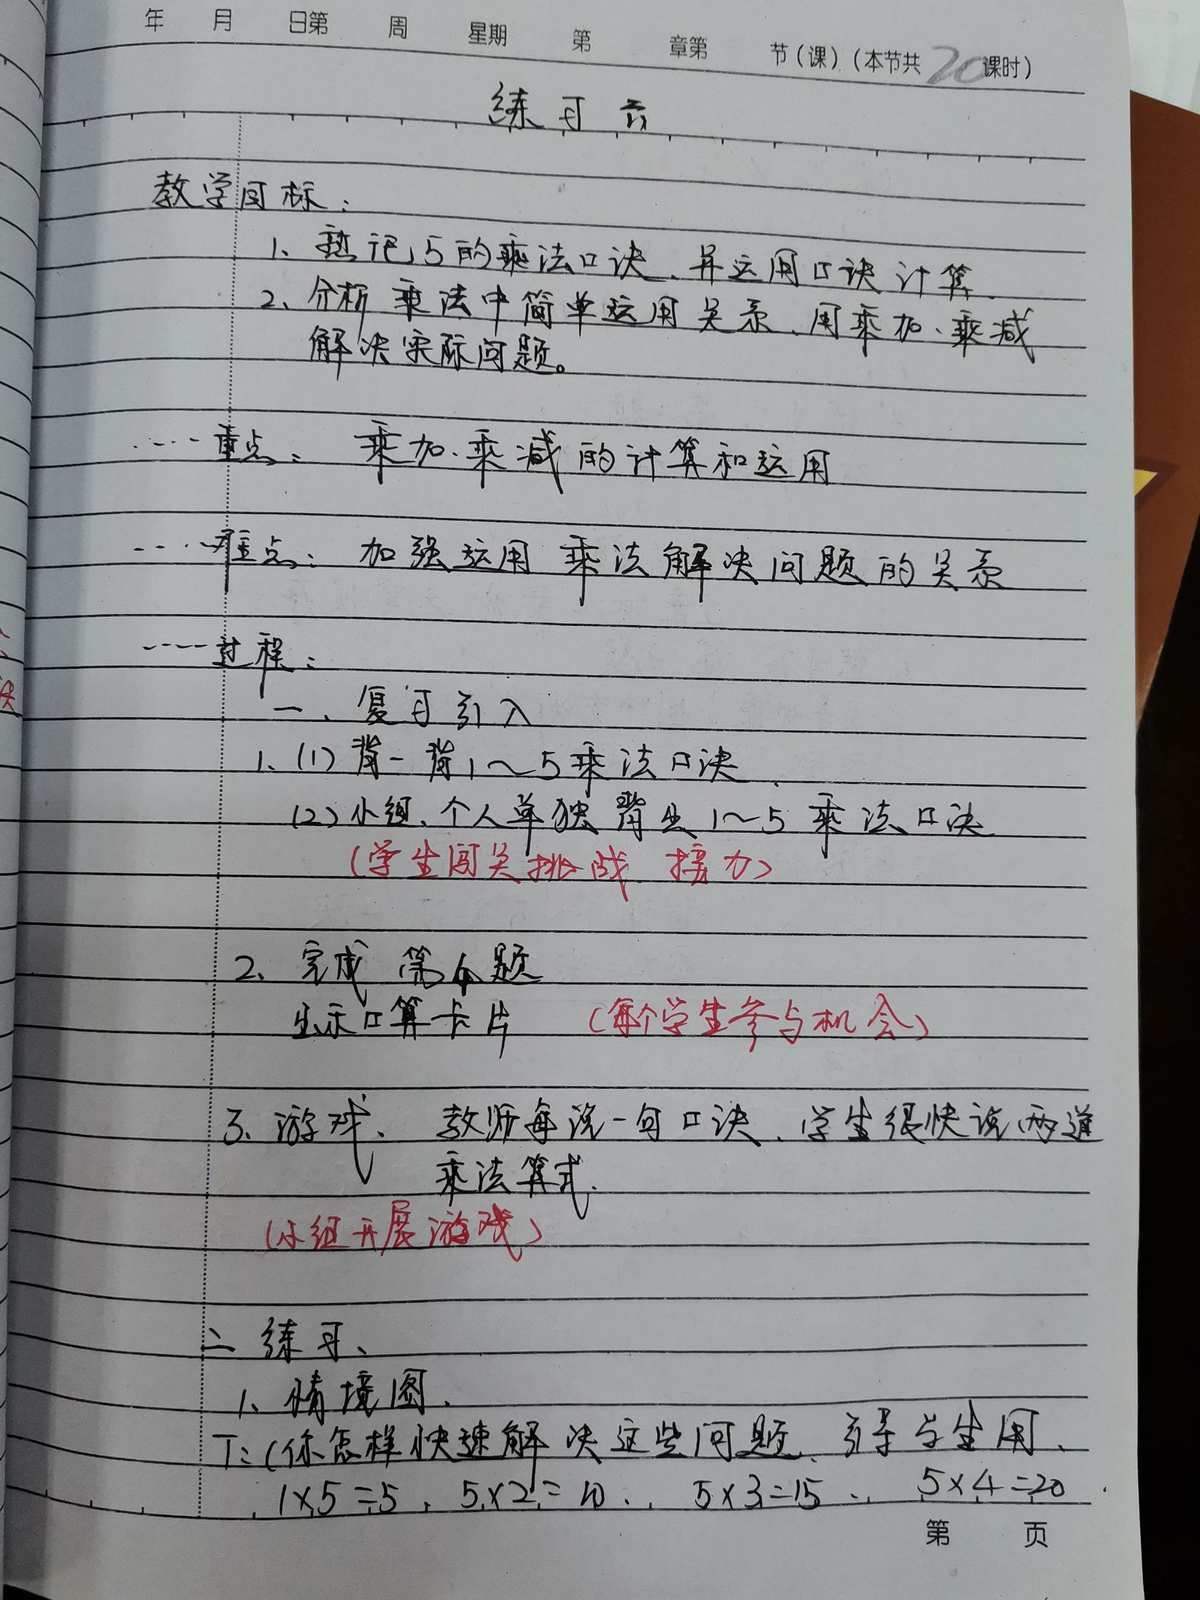 年 月 日第 周 星期 第 章第 节(课)(本节共20课时)
练习六
教学目标:
1、熟记5的乘法口诀、并运用口诀计算.
2、分析乘法中简单运用关系、用乘加、乘减
解决实际问题。
····重点: 乘加、乘减的计算和运用
····难点: 加强运用乘法解决问题的关系
····过程:
一、复习引入
1、(1)背一背1~5乘法口诀.
(2)小组、个人单独背出1~5乘法口诀
(学生闯关挑战 接力)
2、完成第4题
出示口算卡片 (每个学生参与机会)
3、游戏、 教师每说一句口诀、学生很快说两道
乘法算式.
(小组开展游戏)
二 练习、
1、情境图.
T:(你怎样快速解决这些问题、引导学生用、
1×5=5、 5×2=10、 5×3=15、 5×4=20
第 页